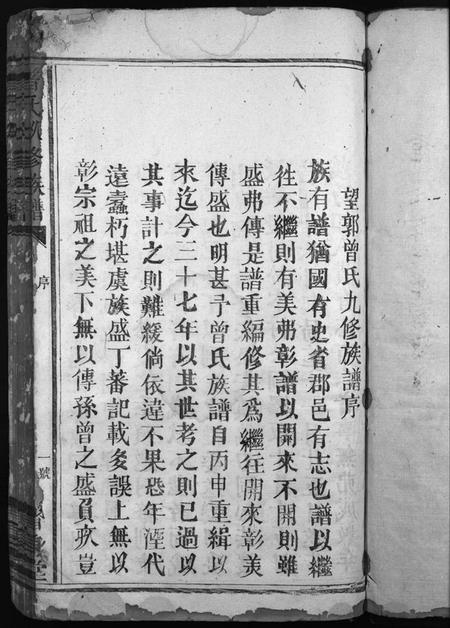 望郭曾氏九修族譜序
族有譜猶國有史省郡邑有志也譜以繼
徃不繼則有美弗彰譜以開來不開則雖
盛弗傳是譜重編修其爲繼徃開來彰美
傳盛也明甚予曾氏族譜自丙申重緝以
來迄今三十七年以其世考之則已過以
其事計之則難緩倘依違不果恐年湮代
遠蠹朽堪虞族盛丁蕃記載多誤上無以
彰宗祖之美下無以傳孫曾之盛負疚豈
氏九修族譜
序
一號